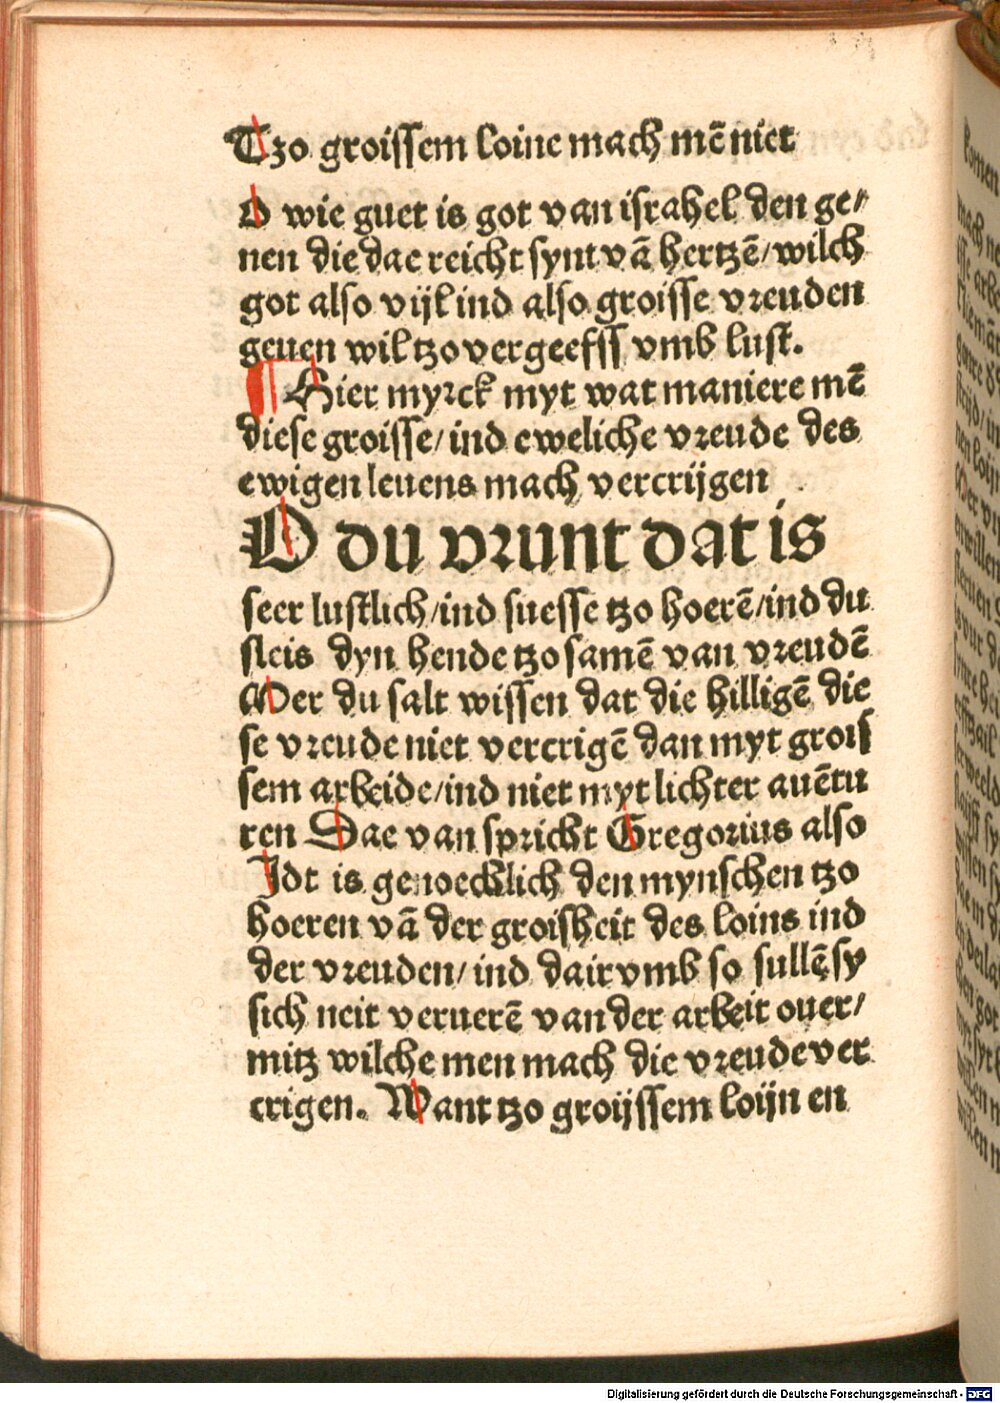 Tzo groissem loine mach mē niet
O wie guet is got van israhel den ge⸗
nen die dae reicht synt vā hertzē/wilch
got also vijl ind also groisse vreuden
geuen wil tzo vergeefss vmb lust.
¶ Hier myrck myt wat maniere mē
diese groisse/ind eweliche vreude des
ewigen leuens mach vercrijgen
O du vrunt dat is
seer lustlich/ind suesse tzo hoerē/ind du
sleis dyn hende tzo samē van vreudē
Mer du salt wissen dat die hilligē die
se vreude niet vercrigē dan myt grois
sem arbeide/ind niet myt lichter auētu
ren Dae van spricht Gregorius also
Idt is genoechlich den mynschen tzo
hoeren vā der groisheit des loins ind
der vreuden/ind dairvmb so sullē sy
sich neit veruerē van der arbeit ouer/
mitz wilche men mach die vreude ver
crigen. Want tzo groijssem loijn en
Digitalisierung gefördert durch die Deutsche Forschungsgemeinschaft - DFG